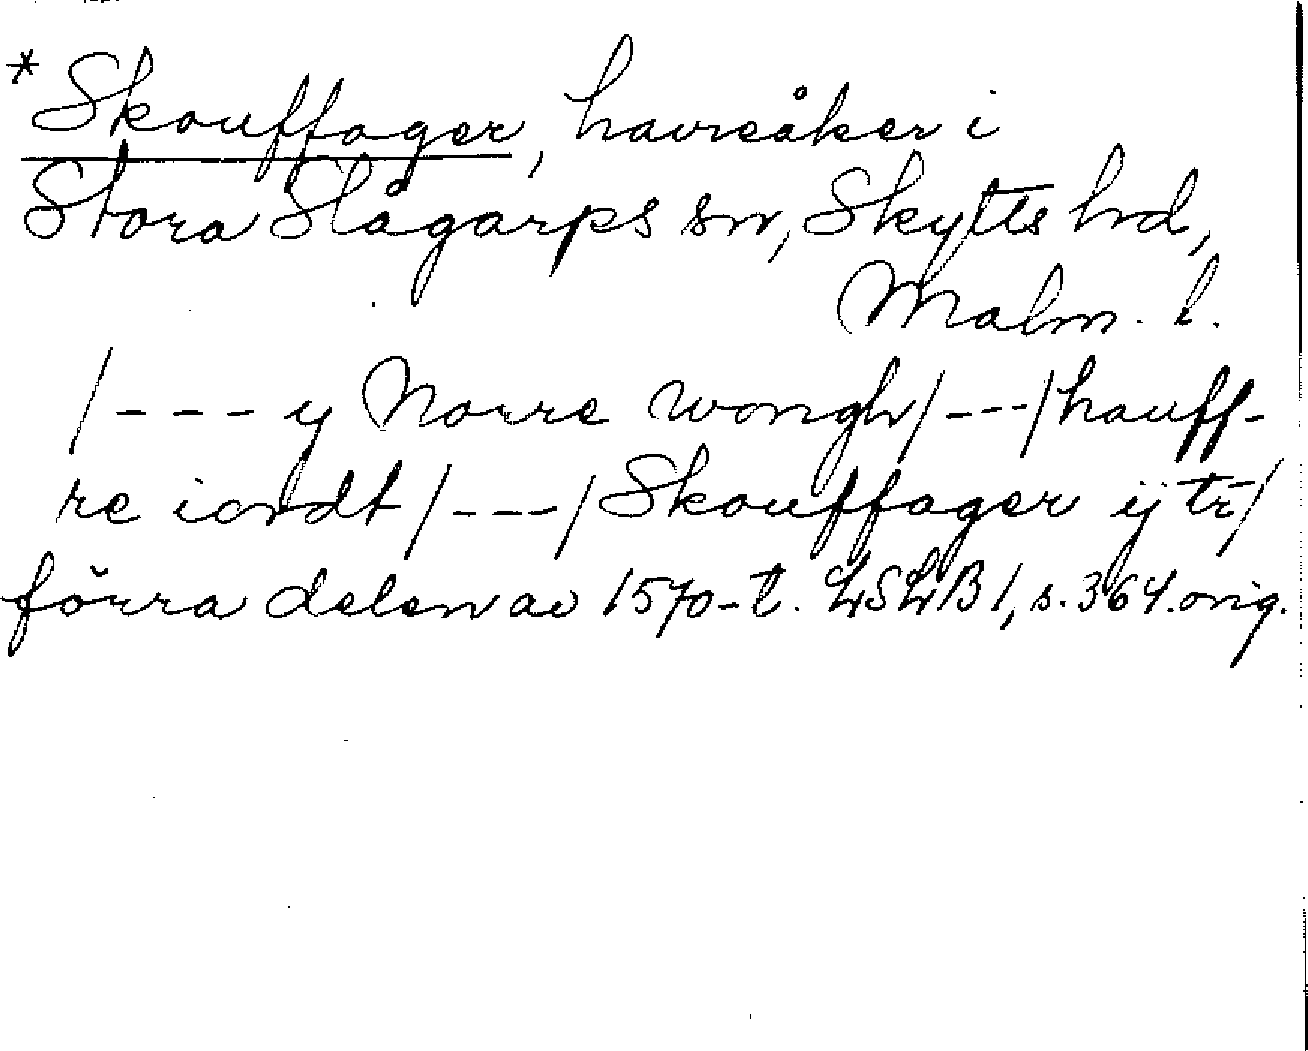 * Skouffager, havreåker i
Stora Slågarps sn, Skytts hd,
Malm. l.
/---y Norre wongh/---/hauff-
re iordt/---/Skouffager ÿ tr/
förra delen av 1570-t. LSLB 1, s. 364. orig.